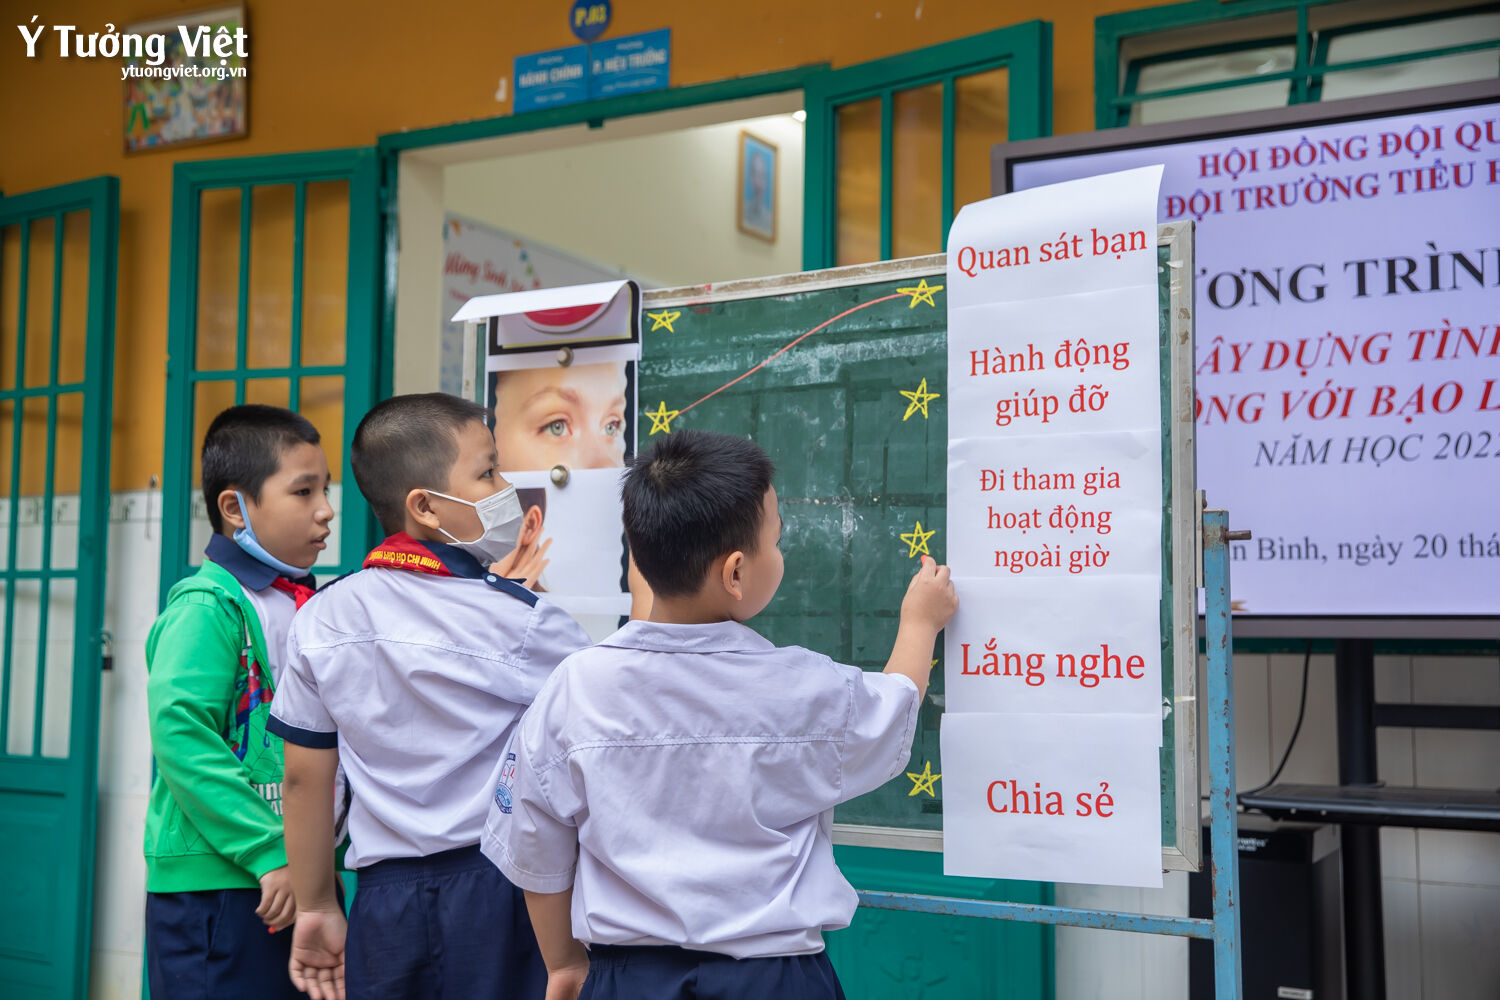 Ý Tưởng Việt
ytuongviet.org.vn
P.03
PHÒNG
HÀNH CHÍNH
PHÒNG
P. HIỆU TRƯỞNG
HỘI ĐỒNG ĐỘI QU
ĐỘI TRƯỜNG TIỂU H
ƯƠNG TRÌN
ÂY DỰNG TÌN
ỐNG VỚI BẠO L
NĂM HỌC 2022
n Bình, ngày 20 thá
Quan sát bạn
Hành động
giúp đỡ
Đi tham gia
hoạt động
ngoài giờ
Lắng nghe
Chia sẻ
THÀNH PHỐ HỒ CHÍ MINH